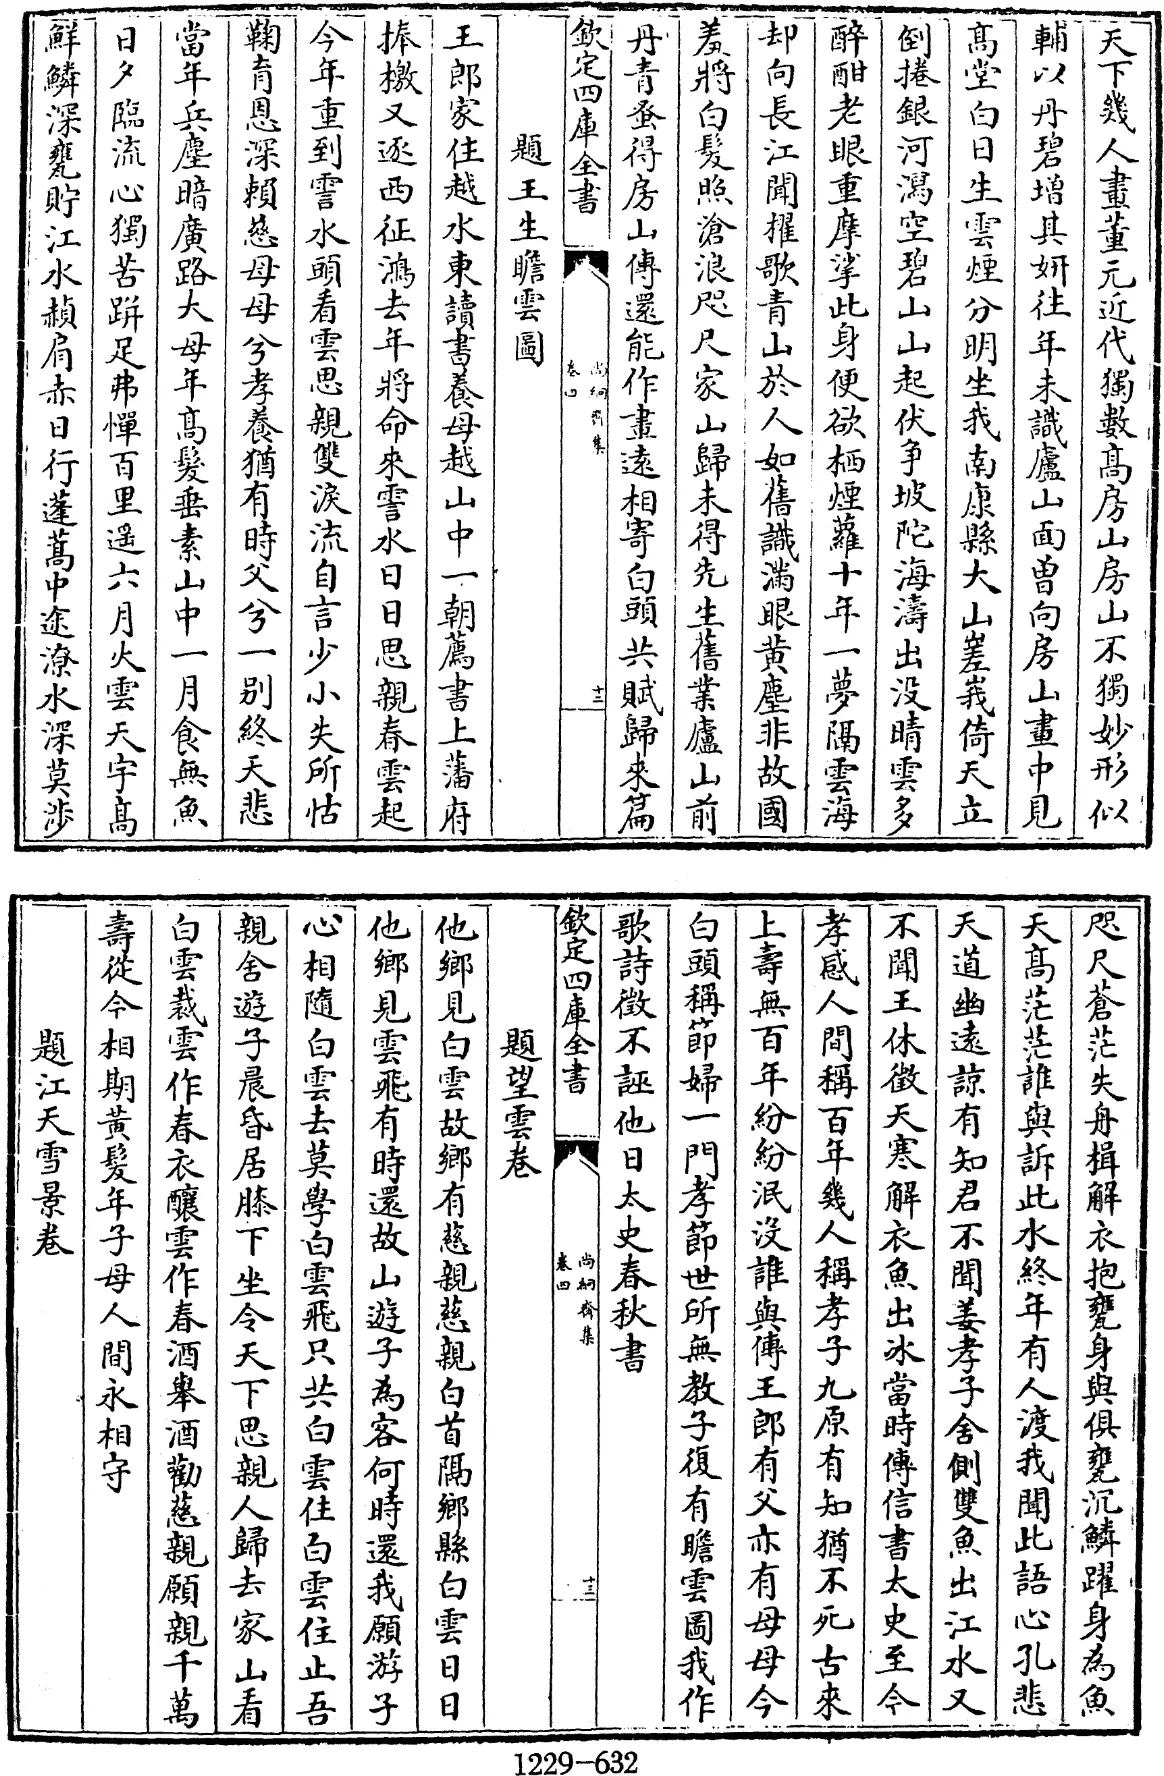 天下幾人畫董元近代獨數高房山房山不獨妙形似
輔以丹碧增其妍往年未識廬山面曽向房山畫中見
高堂白日生雲煙分明坐我南康縣大山嵳峩倚天立
倒捲銀河瀉空碧山山起伏争坡陀海濤出没晴雲多
醉酣老眼重摩挲此身便欲栖煙蘿十年一夢隔雲海
却向長江聞櫂歌青山於人如舊識滿眼黄塵非故國
羞將白髮照滄浪咫尺家山歸未得先生舊業廬山前
丹青蚤得房山傳還能作畫遠相寄白頭共賦歸來篇
欽定四庫全書
尚絅齋集
卷四
十二
題王生瞻雲圖
王郎家住越水東讀書養母越山中一朝薦書上藩府
捧檄又逐西征鴻去年將命來霅水日日思親春雲起
今年重到霅水頭看雲思親雙淚流自言少小失所怙
鞠育恩深賴慈母母兮孝養猶有時父兮一别終天悲
當年兵塵暗廣路大母年高髮垂素山中一月食無魚
日夕臨流心獨苦跰足弗憚百里遥六月火雲天宇高
鮮鱗深甕貯江水頳肩赤日行蓬蒿中途潦水深莫涉
咫尺蒼茫失舟楫解衣抱甕身與俱甕沉鱗躍身為魚
天高茫茫誰與訴此水終年有人渡我聞此語心孔悲
天道幽遠諒有知君不聞姜孝子舍側雙魚出江水又
不聞王休徵天寒解衣魚出冰當時傳信書太史至今
孝感人間稱百年幾人稱孝子九原有知猶不死古來
上壽無百年紛紛泯没誰與傳王郎有父亦有母母今
白頭稱節婦一門孝節世所無教子復有瞻雲圖我作
歌詩徵不誣他日太史春秋書
欽定四庫全書
尚絅齋集
卷四
十三
題望雲卷
他鄉見白雲故鄉有慈親慈親白首隔鄉縣白雲日日
他鄉見雲飛有時還故山遊子為客何時還我願游子
心相隨白雲去莫學白雲飛只共白雲住白雲住止吾
親舍遊子晨昏居膝下坐令天下思親人歸去家山看
白雲裁雲作春衣釀雲作春酒舉酒勸慈親願親千萬
壽從今相期黄髮年子母人間永相守
題江天雪景卷
1229-632